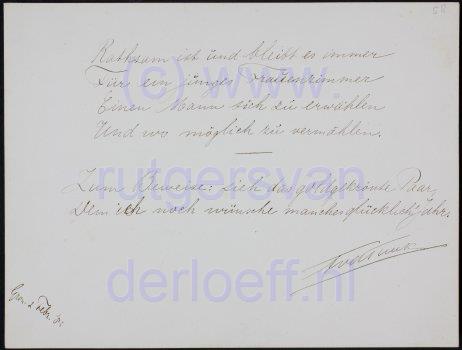 Rathsam ist und bleibt es immer
Für ein junges Frauenzimmer
Einen Mann sich zu erwählen
Und wo möglich zu vermählen.
Zum Beweise: Sieh das goldgekrönte Paar,
Dem ich noch wünsche manches glücklich Jahr.
(c) www.
rutgersvan
derloeff.nl